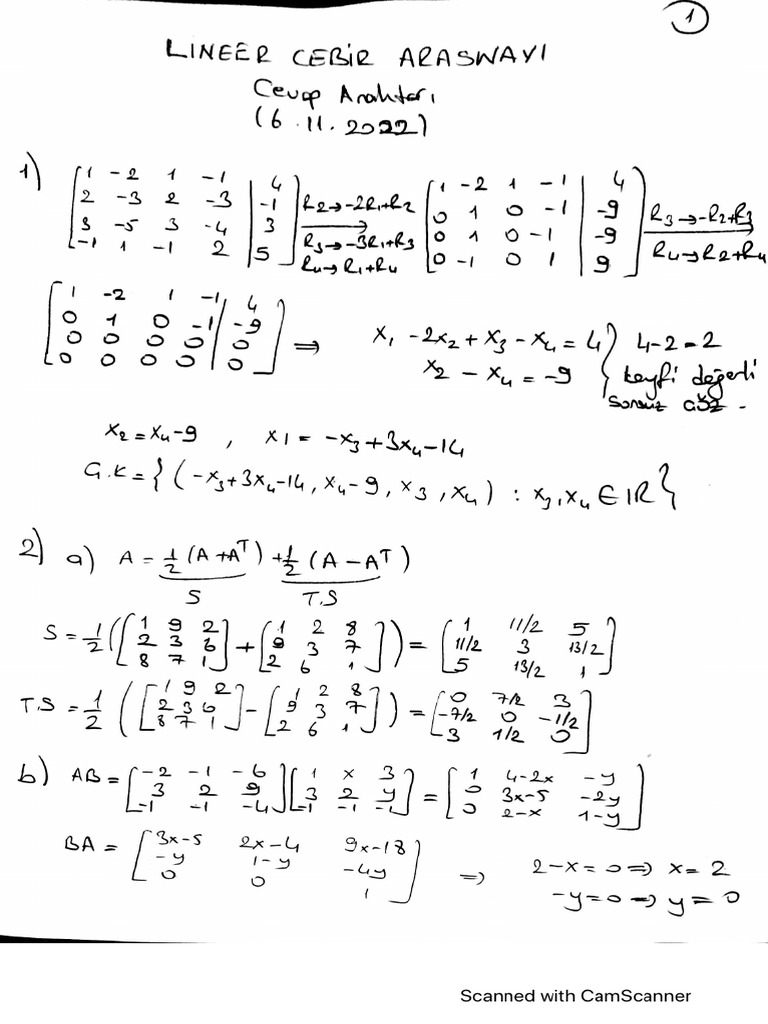 1
LINEER CEBİR ARASINAVI
Cevap Anahtarı
(6.11.2022)
1) [1 -2 1 -1 | 4; 2 -3 2 -3 | -1; 3 -5 3 -4 | 3; -1 1 -1 2 | 5] R2→-2R1+R2 R3→-3R1+R3 R4→R1+R4 [1 -2 1 -1 | 4; 0 1 0 -1 | -9; 0 1 0 -1 | -9; 0 -1 0 1 | 9] R3→-R2+R3 R4→R2+R4
[1 -2 1 -1 | 4; 0 1 0 -1 | -9; 0 0 0 0 | 0; 0 0 0 0 | 0] ⇒ x1 -2x2 + x3 - x4 = 4 } 4-2=2
x2 - x4 = -9 } keyfi değerli
sonsuz çöz.
x2 = x4 - 9 , x1 = -x3 + 3x4 - 14
G.K = { (-x3+3x4-14, x4-9, x3, x4) : x3, x4 ∈ IR }
2) a) A = 1/2 (A + Aᵀ) + 1/2 (A - Aᵀ)
S T.S
S = 1/2 ([1 9 2; 2 3 6; 8 7 1] + [1 2 8; 9 3 7; 2 6 1]) = [1 11/2 5; 11/2 3 13/2; 5 13/2 1]
T.S = 1/2 ([1 9 2; 2 3 6; 8 7 1] - [1 2 8; 9 3 7; 2 6 1]) = [0 7/2 3; -7/2 0 -1/2; 3 1/2 0]
b) AB = [-2 -1 -6; 3 2 9; -1 -1 -4] [1 x 3; 3 2 y; -1 -1 -1] = [1 4-2x -y; 0 3x-5 -2y; 0 2-x 1-y]
BA = [3x-5 2x-4 9x-18; -y 1-y -4y; 0 0 1] ⇒ 2-x=0 ⇒ x=2
-y=0 ⇒ y=0
Scanned with CamScanner